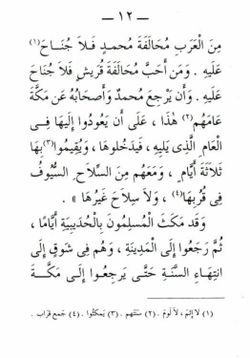 — ١٢ —
مِنَ الْعَرَبِ مُحَالَفَةَ مُحمدٍ فَلاَ جُنَاحَ (١)
عَلَيهِ . وَمَن أَحَبَّ مُحَالَفَةَ قُرَيشٍ فَلاَ جُنَاحَ
عَلَيهِ . وَأَن يَرْجِعَ مُحمدٌ وَأَصحَابُهُ عَن مَكَّةَ
عَامَهُم (٢) هٰذَا ، عَلَى أَن يَعُودُوا إِلَيهَا فِى
الْعَامِ الَّذِى يَلِيهِ ، فَيَدخُلوهَا ، وَيُقِيمُوا (٣) بِهَا
ثَلاَثَةَ أَيَّامٍ . وَمَعَهُم مِنَ السِّلاَحِ السُّيُوفُ
فِى قُرُبِهَا (٤) ، وَلاَ سِلاَحَ غَيرُهَا » .
وَقَد مَكَثَ الْمُسلِمُونَ بِالْحُدَيبِيَةِ أَيَّامًا ،
ثُمَّ رَجَعُوا إِلَى الْمَدِينَةِ ، وَهُم فِى شَوقٍ إِلَى
انتِهَاءِ السَّنَةِ حَتَّى يَرجِعُوا إِلَى مَكَّةَ
(١) لا إثمَ ، لاَ لَومَ . (٢) سنتهم . (٣) يَمكثُوا . (٤) جَمع قراب .